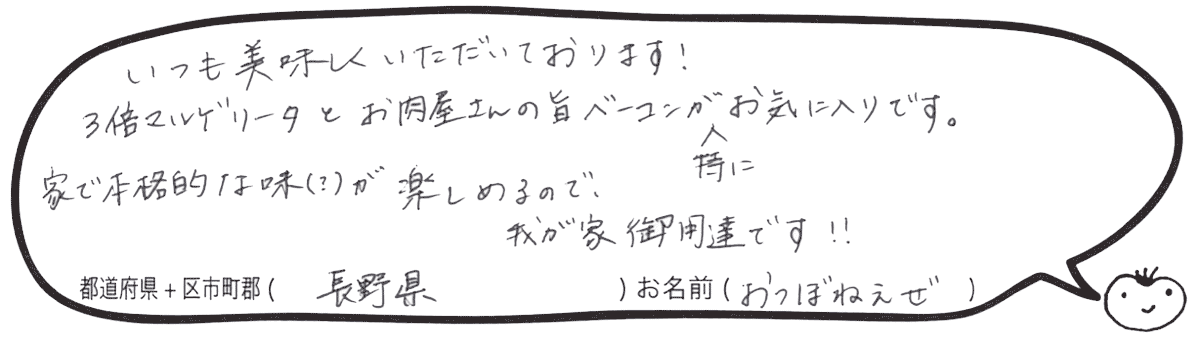 いつも美味しくいただいております!
3倍マルゲリータとお肉屋さんの旨ベーコンがお気に入りです。
特に
家で本格的な味(?)が楽しめるので、
我が家御用達です!!
都道府県+区市町郡( 長野県 )お名前(おつぼねえぜ )